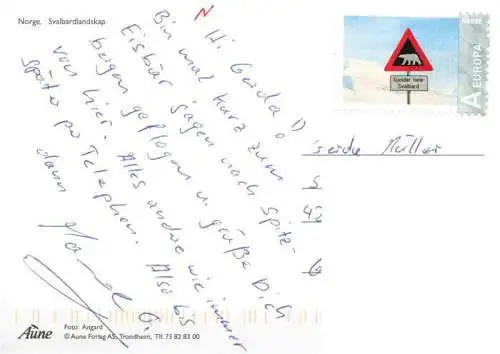 Norge. Svalbardlandskap.
Hi Gerda!
Bin mal kurz zum
Eisbär jagen nach Spitz-
bergen geflogen u. grüße Dich
von hier. Alles andre wie immer
später per Telephon. Also bis
dann
NORGE
A EUROPA
Gjelder hele
Svalbard
Müller
Aune
Foto: Aagard
© Aune Forlag AS, Trondheim, Tlf. 73 82 83 00